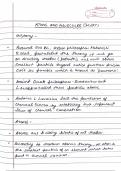 ATOMS AND MOLECULES (CH-03)
History -
Around 500 BC, Indian philosopher Maharishi
Kanad, postulated the theory if we go
on dividing matter (padarth), we will obtain
smallest particle beyond which further division
can't be possible which is known as 'parmanu'.
Ancient Greek philosophers - Democritus and
Leucippus called these particles atoms.
Antoine L. Lavoisier laid the foundation of
Chemical Science by establishing two important
laws of chemical combination.
Atoms -
Atoms are building blocks of all matter.
According to modern atomic theory, an atom is
the smallest particle of an element which takes
part in chemical reaction